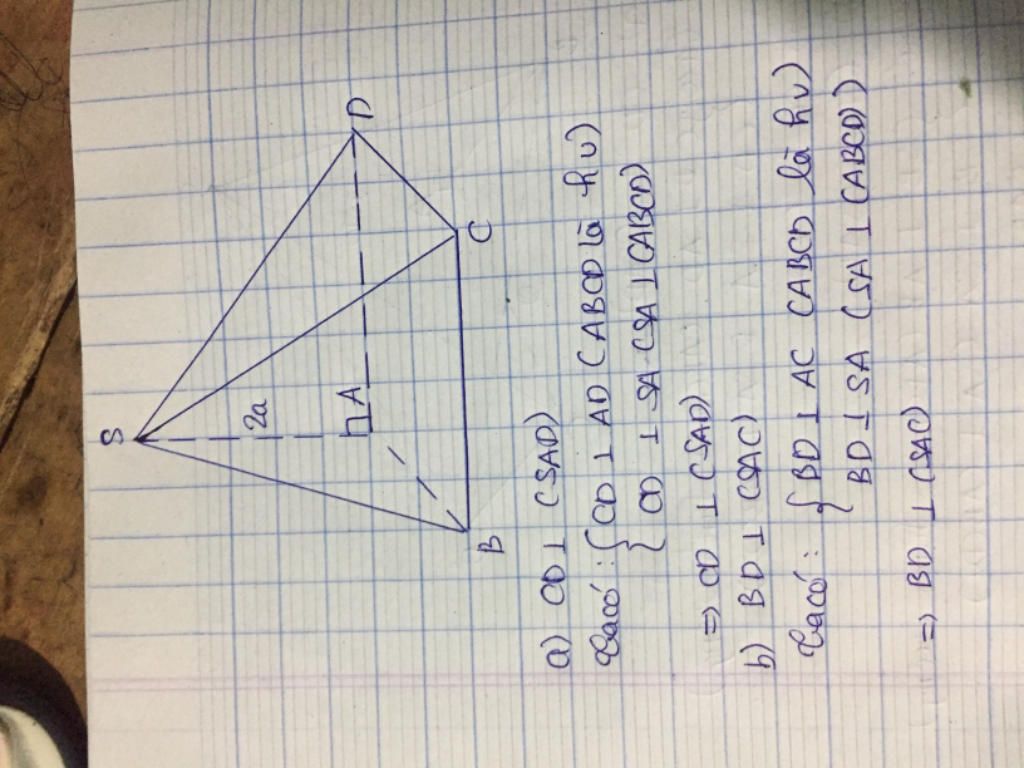 S
2a
A
D
B
C
a) CD ⊥ (SAD)
Ta có : { CD ⊥ AD (ABCD là hv)
{ CD ⊥ SA (SA ⊥ (ABCD)
=) CD ⊥ (SAD)
b) BD ⊥ (SAC)
Ta có : { BD ⊥ AC (ABCD là hv)
BD ⊥ SA (SA ⊥ (ABCD))
=) BD ⊥ (SAC)